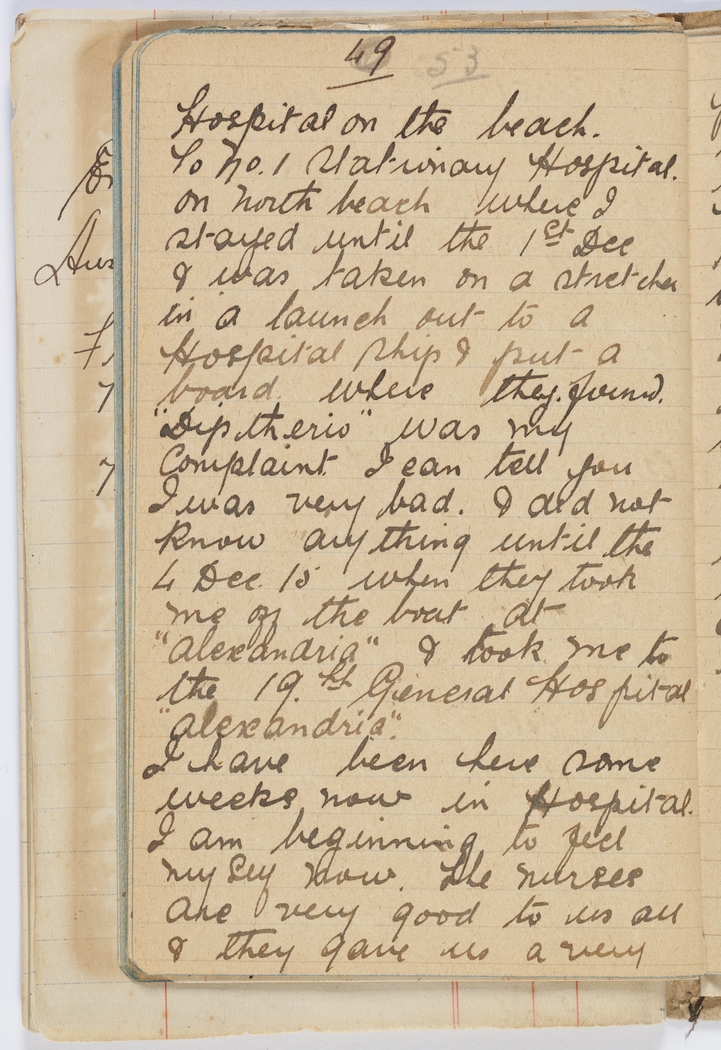 49 53
Hospital on the beach.
To No. 1 Stationary Hospital.
on North beach where I
stayed until the 1st Dec
& I was taken on a stretcher
in a launch out to a
Hospital Ship & put a
board where they found.
"Diptherio" was my
Complaint I can tell you
I was very bad. & did not
know anything until the
4 Dec. 15 when they took
me off the boat at
"alexandria" & took me to
the 19.th General Hospital
"alexandria".
I have been here some
weeks now in Hospital.
I am beginning to feel
myself now. The nurses
are very good to us all
& they gave us a very